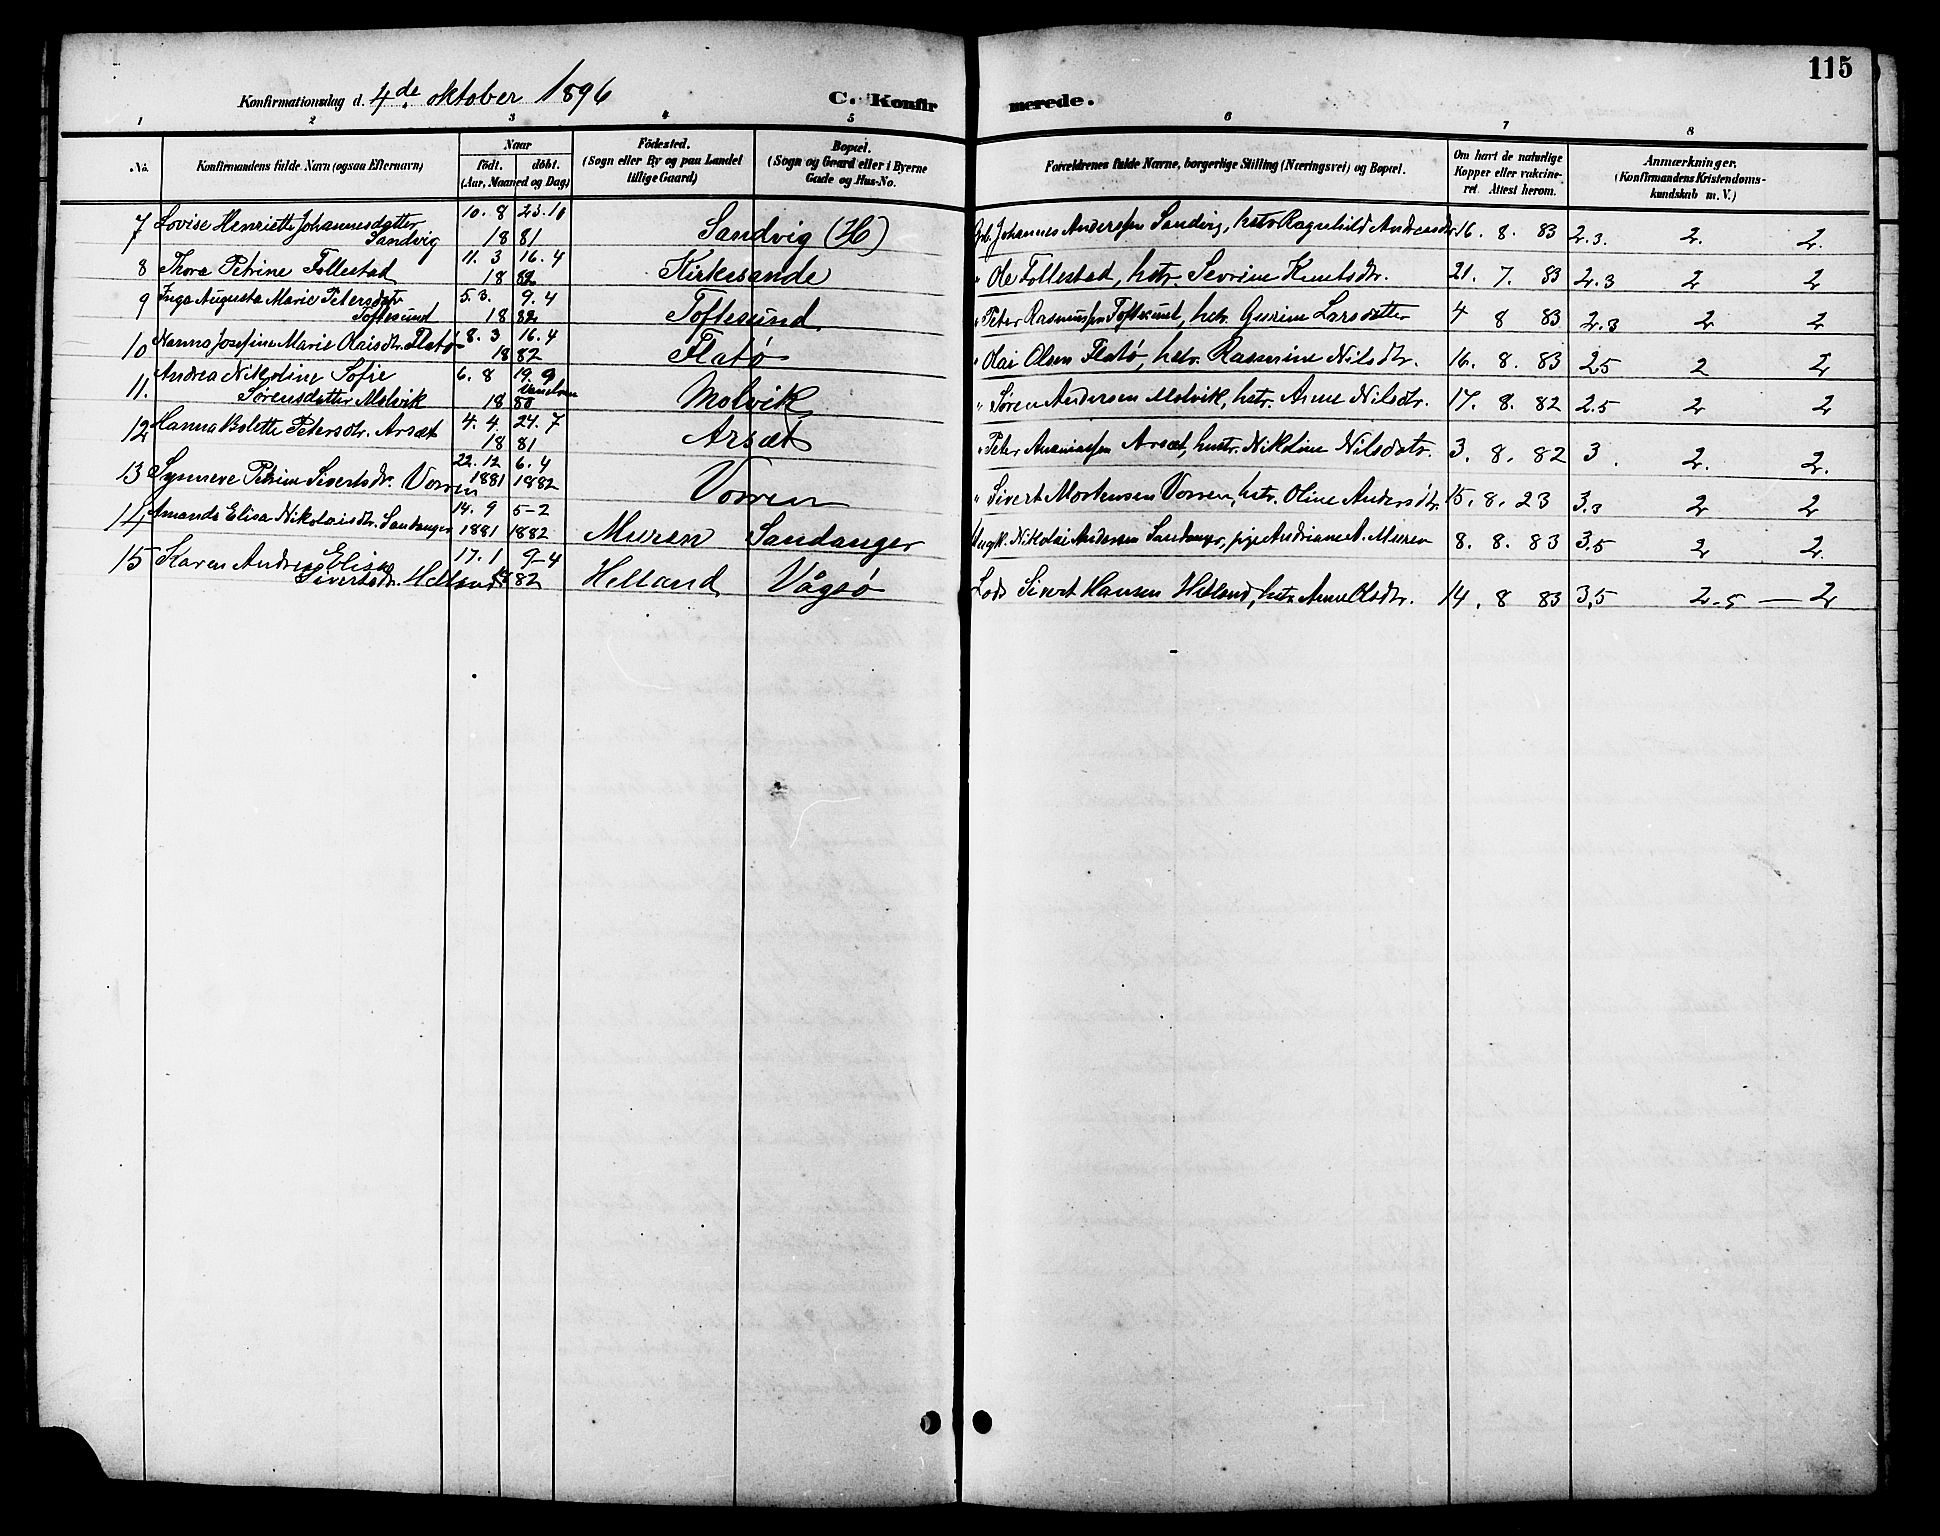 115
Konfirmationsdag d. 4de oktober 1896 C. Konfirmerede.
1 2 3 4 5 6 7 8
No. Konfirmandens fulde Navn (ogsaa Efternavn) Naar født. døbt. (Aar, Maaned og Dag) Fødested. (Sogn eller By og paa Landet tillige Gaard) Bopæl. (Sogn og Gaard eller i Byerne Gade og Hus-No. Forældrenes fulde Navne, borgerlige Stilling (Næringsvei) og Bopæl. Om havt de naturlige Kopper eller vakcineret. Attest herom. Anmærkninger. (Konfirmandens Kristendomskundskab m. V.)
7 Lovise Henriette Johannesdatter Sandvig 10. 8 23.10 1881 Sandvig (H) Gb. Johannes Anderssen Sandvig, hstr. Ragnhild Andreasdtr. 16. 8. 83 2.3. 2. 2.
8 Thora Petrine Follestad 11. 3 16. 4 1882 Kirkesande " Ole Follestad, hstr. Sevrine Knutsdr. 21. 7. 83 2.3 2 2
9 Inga Augusta Marie Petersdatr Toftesund 5.3. 9. 4 1882 Toftesund " Peter Rasmussen Toftesund, hstr. Gurine Larsdatter 4 8 83 2.3 2 2
10 Nanna Josefine Marie Olaisdtr. Flatø 8. 3 16. 4 1882 Flatø " Olai Olsen Flatø, hstr. Rasmine Nilsdtr. 16. 8. 83 2.5 2 2
11. Andrea Nikoline Sofie Sørensdatter Molvik 6. 8 19. 9 1880 Molvik " Søren Andersen Molvik, hstr. Anne Nilsdtr. 17. 8. 82 2.5 2 2
12 Hanna Bolette Petersdtr. Arsæt 4. 4. 24. 7 1881 Arsæt " Peter Ananiassen Arsæt, hustr. Nikoline Nilsdatr. 3. 8. 82 3. 2. 2.
13 Synneve Petrine Sivertsdr. Vorren 22. 12 1881 6. 4 1882 Vorren " Sivert Mortensen Vorren, hstr. Oline Andersdtr. 15. 8. 23 3.3 2 2
14 Amanda Elisa Nikolaisdtr. Sandanger 14. 9 1881 5-2 1882 Muren Sandanger Ungk. Nikolai Andersen Sandanger, pige Andriane A. Muren 8. 8. 83 3.5 2 2.
15 Karen Andrea Elisa Sivertsdr. Helland 17. 1 9-4 1882 Helland Vågsø Lods Sivert Hansen Helland, hstr. Anne Olsdtr. 14. 8 83 3.5 2.5 — 2